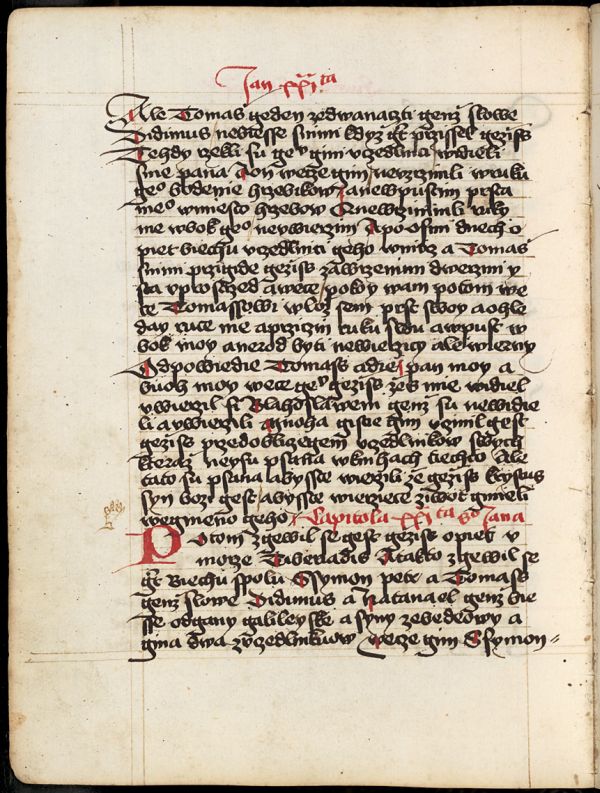 Jan xxi ta
Ale Tomas geden zedwanaczti genż slowe
Didimus nebiesse snimi kdyz gt przissel geziss
Tehdy rzekli su geo gini vczedlnici widieli
sme pana A on wecze gim neuzrzimli wruku
geo bodenie hrzebikow A newpustim prsta
meo wmiesto hrzebow A newzimimli ruky
me wbok geo neywierzim A po osmi dnech o
piet biechu vczedlnici geho wnitrz a Tomas
snimi przigide geziss zawrzenimi dwerzmi y
sta vprostrzed a wece pokoy wam potom we
ce Tomassowi wloz sem prst swoy a ohle
day ruce me a prziczin ruku swu a wpust w
bok moy a nerod byti newierzicy ale wierny
Odpowiedie Tomass a die pan moy a
buoh moy wece geo geziss żes mie widiel
vwierzil si Blahoslaweni genż su newidie
li a vwierzili A mnoha gistie gina vcinil gest
geziss przedobliczegem vczedlnikow swych
kteraż neysu psana wknihach tiechto Ale
tato su psana abysste wierzili że geziss krystus
syn bozi gest abysste wierziece ziwot gmieli
wegmeno geho Capitola xxi ta sd Jana
Potom zgewil se gest geziss opiet v
morze Tiberiadis A takto zgewil se
gt Biechu spolu Ssymon petr a Tomass
genż slowe Didimus a Natanael genż bie
sse odgany galileyske a syny zebedeowy a
gina dwa zvczedlnikuow wecze gim Ssymon=